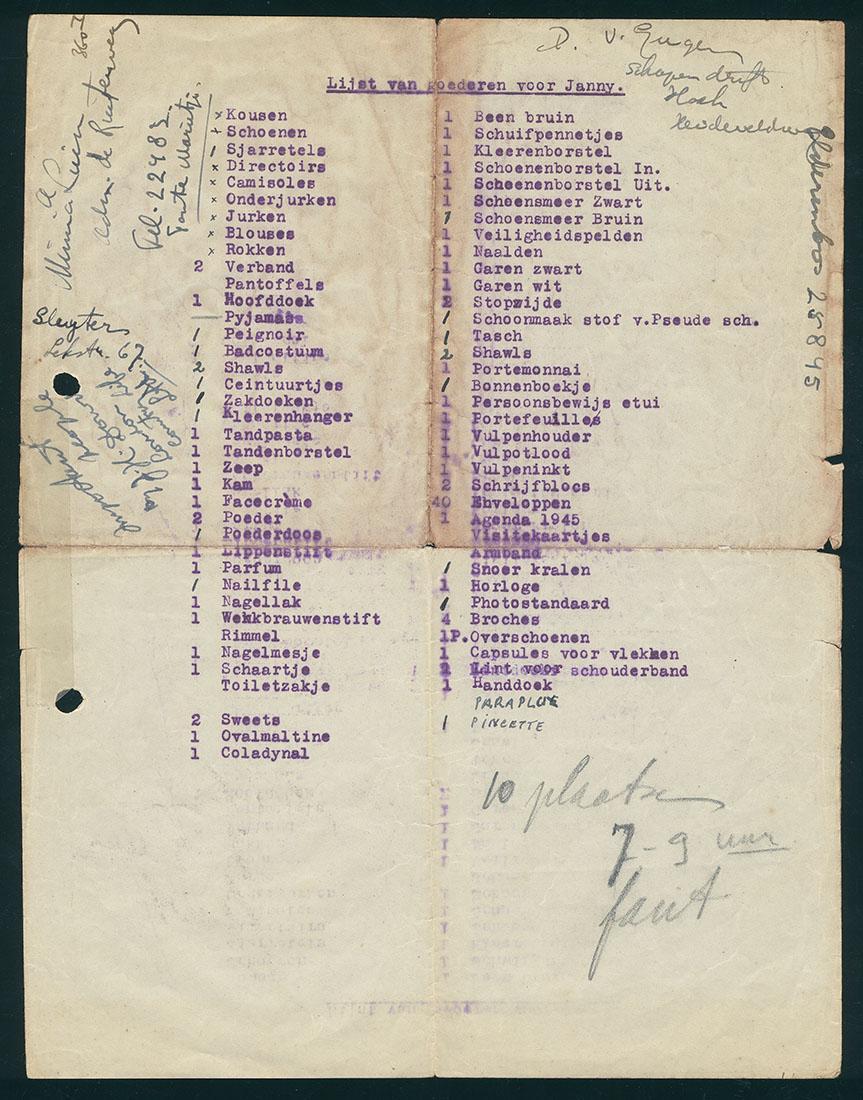 Lijst van goederen voor Janny.
D. v.
Schapendrift
Hoek
Tel. 22483
Tante
Adm. de Ruyterweg
Minna
360 I
28845
Sleyter
Lekstr. 67
x Kousen
+ Schoenen
1 Sjarretels
x Directoirs
x Camisoles
x Onderjurken
x Jurken
x Blouses
x Rokken
2 Verband
Pantoffels
1 Hoofddoek
— Pyjamaas
1 Peignoir
1 Badcostuum
2 Shawls
1 Ceintuurtjes
1 Zakdoeken
1 Kleerenhanger
1 Tandpasta
1 Tandenborstel
1 Zeep
1 Kam
1 Facecrème
2 Poeder
1 Poederdoos
1 Lippenstift
1 Parfum
1 Nailfile
1 Nagellak
1 Wenkbrauwenstift
Rimmel
1 Nagelmesje
1 Schaartje
Toiletzakje
2 Sweets
1 Ovalmaltine
1 Coladynal
1 Been bruin
1 Schuifpennetjes
1 Kleerenborstel
1 Schoenenborstel In.
1 Schoenenborstel Uit.
1 Schoensmeer Zwart
1 Schoensmeer Bruin
1 Veiligheidspelden
1 Naalden
1 Garen zwart
1 Garen wit
2 Stopzijde
1 Schoonmaak stof v.Pseude sch.
1 Tasch
2 Shawls
1 Portemonnai
1 Bonnenboekje
1 Persoonsbewijs etui
1 Portefeuilles
1 Vulpenhouder
1 Vulpotlood
1 Vulpeninkt
2 Schrijfblocs
40 Enveloppen
1 Agenda 1945
Visitekaartjes
Armband
1 Snoer kralen
1 Horloge
1 Photostandaard
4 Broches
1P. Overschoenen
1 Capsules voor vlekken
2 Lint voor schouderband
1 Handdoek
PARAPLUE
1 PINCETTE
10 plaatsen
7-9 uur